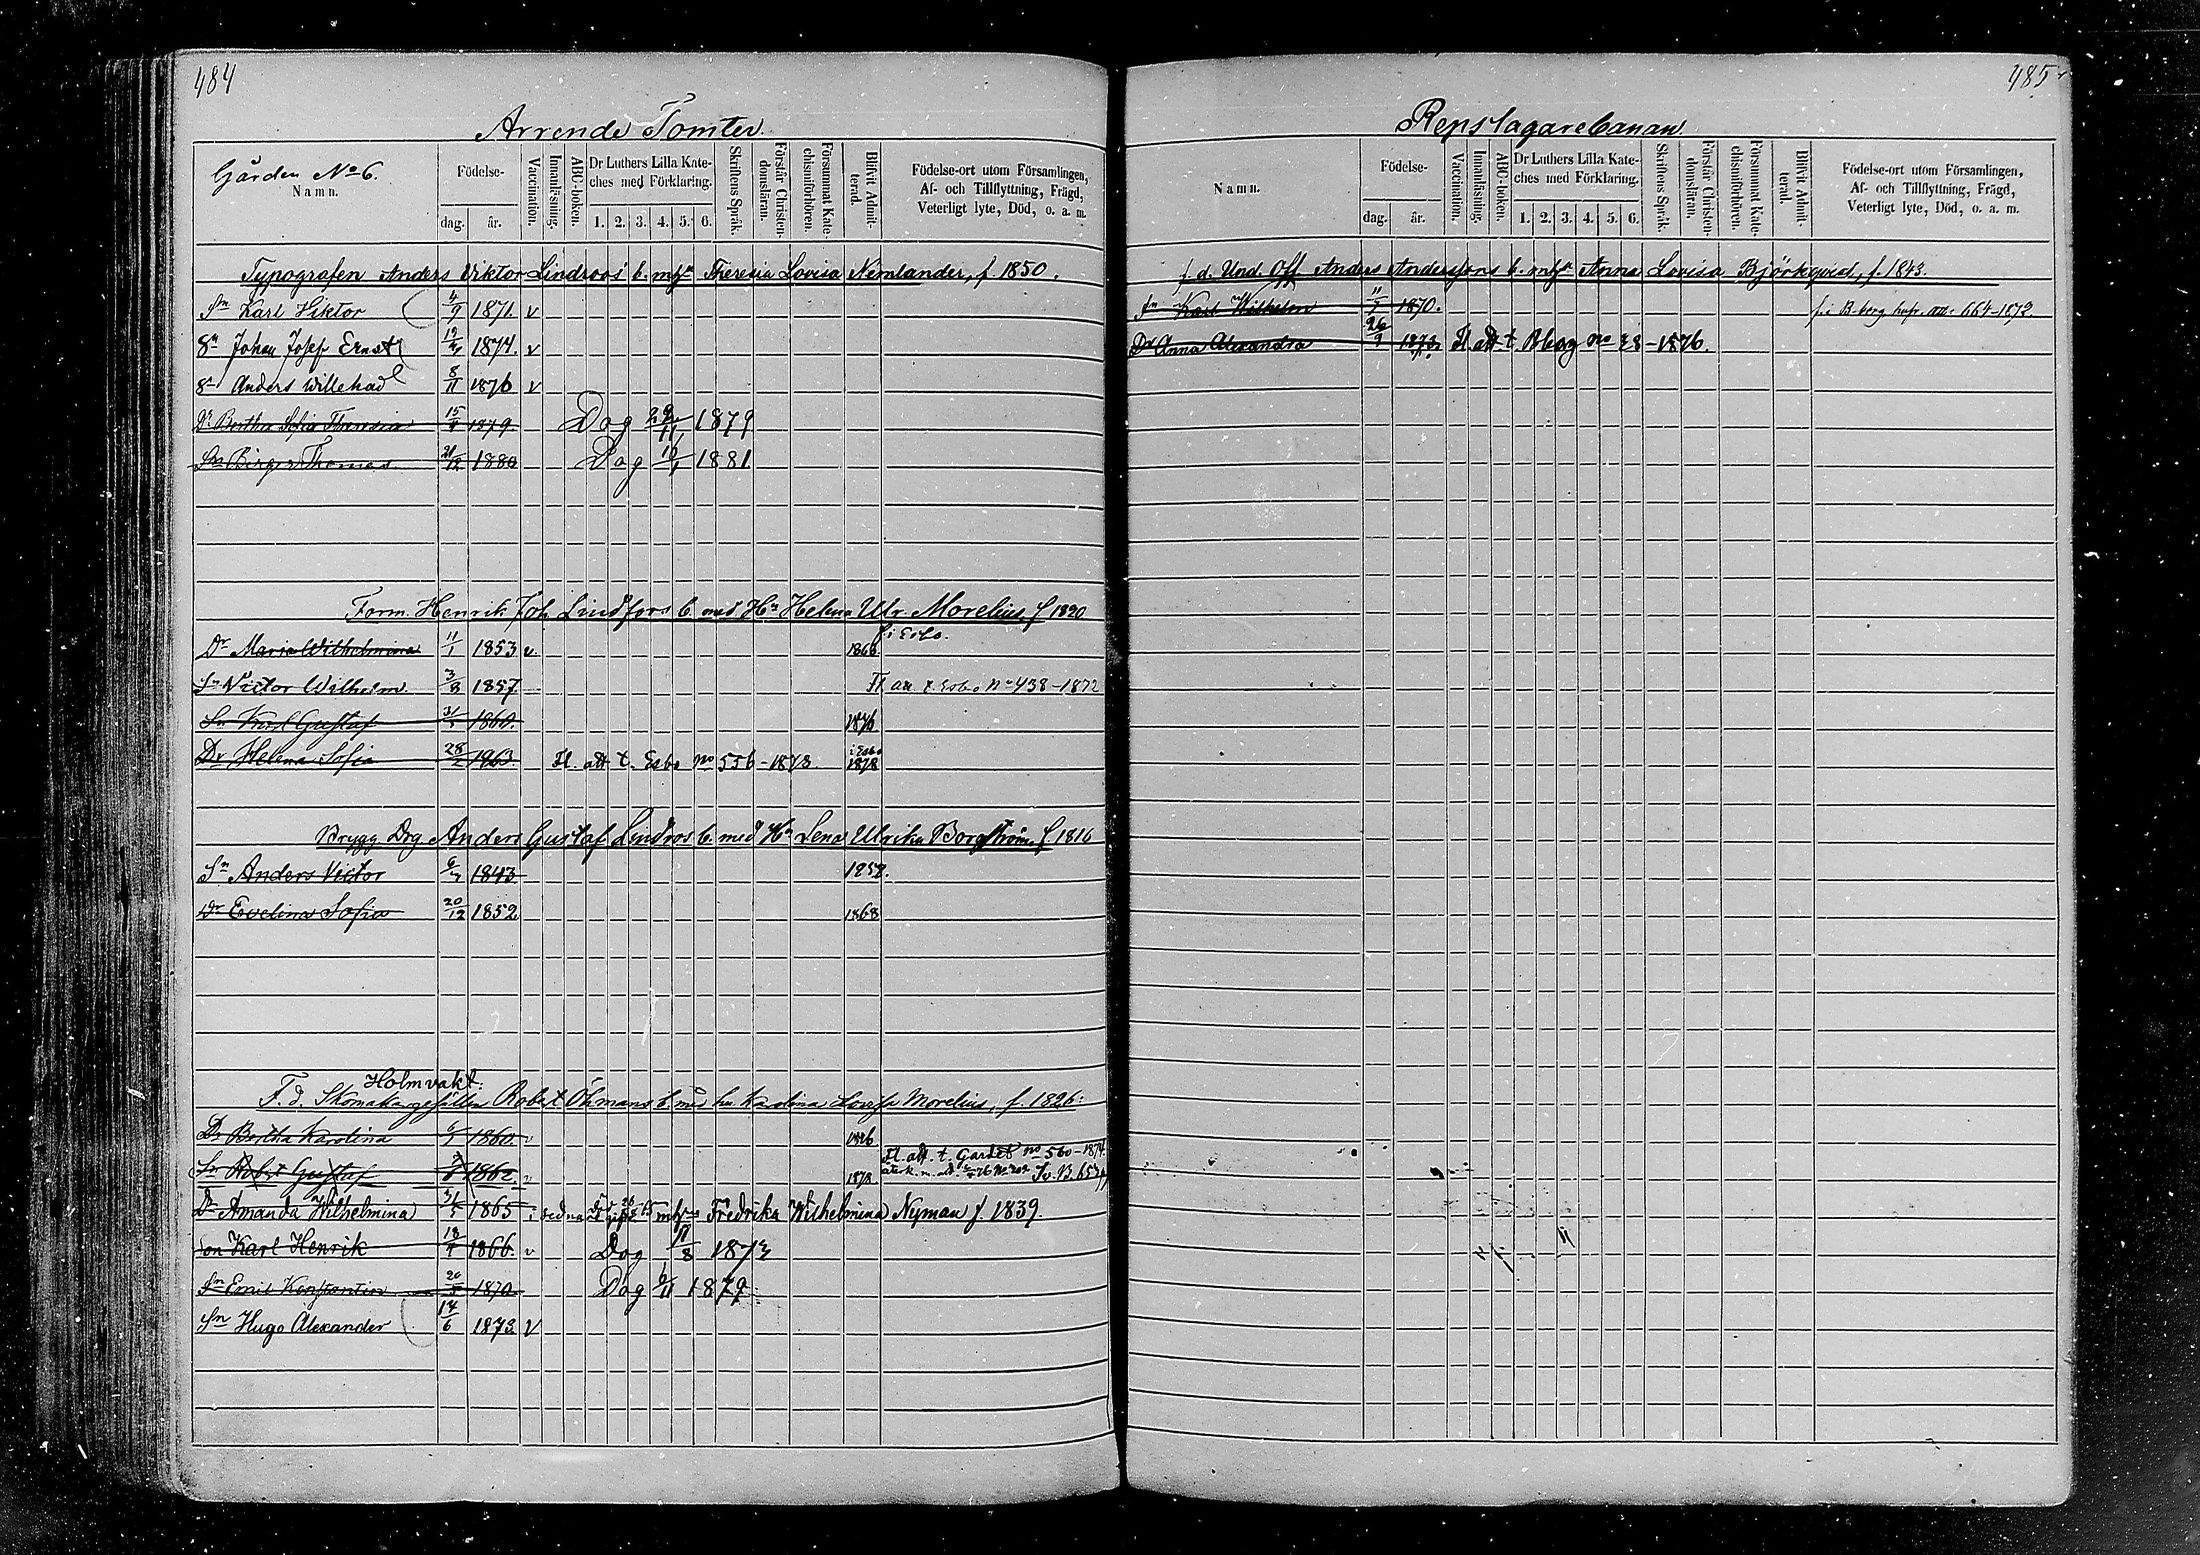 484
Arrende Tomter.
Gården No 6.
Namn.
Födelse-
dag.
år.
Vaccination.
Innanläsning.
ABC-boken.
Dr Luthers Lilla Kate-
ches med Förklaring.
1. 2. 3. 4. 5. 6.
Skriftens Språk.
Förstår Christen-
domsläran.
Försummat Kate-
chismiförhören.
Blifvit Admit-
terad.
Födelse-ort utom Församlingen,
Af- och Tillflyttning, Frägd,
Veterligt lyte, Död, o. a. m.
Typografen Anders Viktor Lindroos' b. m hn Theresia Lovisa Nemlander, f 1850.
Sn Karl Viktor 4/9 1871. v
Sn Johan Josef Ernst 1874. v
Sn Anders Willehad 8/11 1876 v
Dr Bertha Sofia Theresia 15 1879 Dog 22/11 1879
Sn Birger Thomas 21/12 1880 Dog 1881
Form. Henrik Joh. Lindfors b. med Hn Helena Ulr. Morelius, f 1820
f. i Esbo.
Dr Maria Wilhelmina 11/1 1853 v. 1868
Sn Victor Wilhelm. 3/8 1857. Fl att t. Esbo No 438-1872
Sn Karl Gustaf 31 1860. 1876
Dr Helena Sofia 28/2 1863 Fl. att t. Esbo no 556-1873. i Esbo 1878
Brygg. Drg Anders Gustaf Lindros b. med Hn Lena Ulrika Borgström, f 1816
Sn Anders Victor 1843 1858.
Dr Evelina Sofia 20/12 1852 1868
Holmvakt:
F. d. Skomakaregesällen Robert Öhmans b. med hn Karolina Lovisa Morelius, f. 1826:
Dr Bertha Karolina 1860. v 1876
Fl. att. t. Gardet no 560-1874.
Sn Robert Gustaf 1862. v 1878
Dr Amanda Wilhelmina 31 1865 mhn Fredrika Wilhelmina Nyman f. 1839.
Son Karl Henrik 18 1866. v Dog 11/8 1873
Sn Emil Konstantin 20 1870 Dog 6/11 1879
Sn Hugo Alexander 14/6 1873 v
485
Repslagarebanan
Namn.
Födelse-
dag.
år.
Vaccination.
Innanläsning.
ABC-boken.
Dr Luthers Lilla Kate-
ches med Förklaring.
1. 2. 3. 4. 5. 6.
Skriftens Språk.
Förstår Christen-
domsläran.
Försummat Kate-
chismiförhören.
Blifvit Admit-
terad.
Födelse-ort utom Församlingen,
Af- och Tillflyttning, Frägd,
Veterligt lyte, Död, o. a. m.
f. d. Und. Off Anders Anderssons b. mhn Anna Lovisa Björkqvist, f. 1843.
Sn Karl Wilhelm 11 1870. f. i B-borg. hufv. att: 664-1872.
Dr Anna Alexandra 26/9 1873. Fl att t. Bborg no 38-1876.